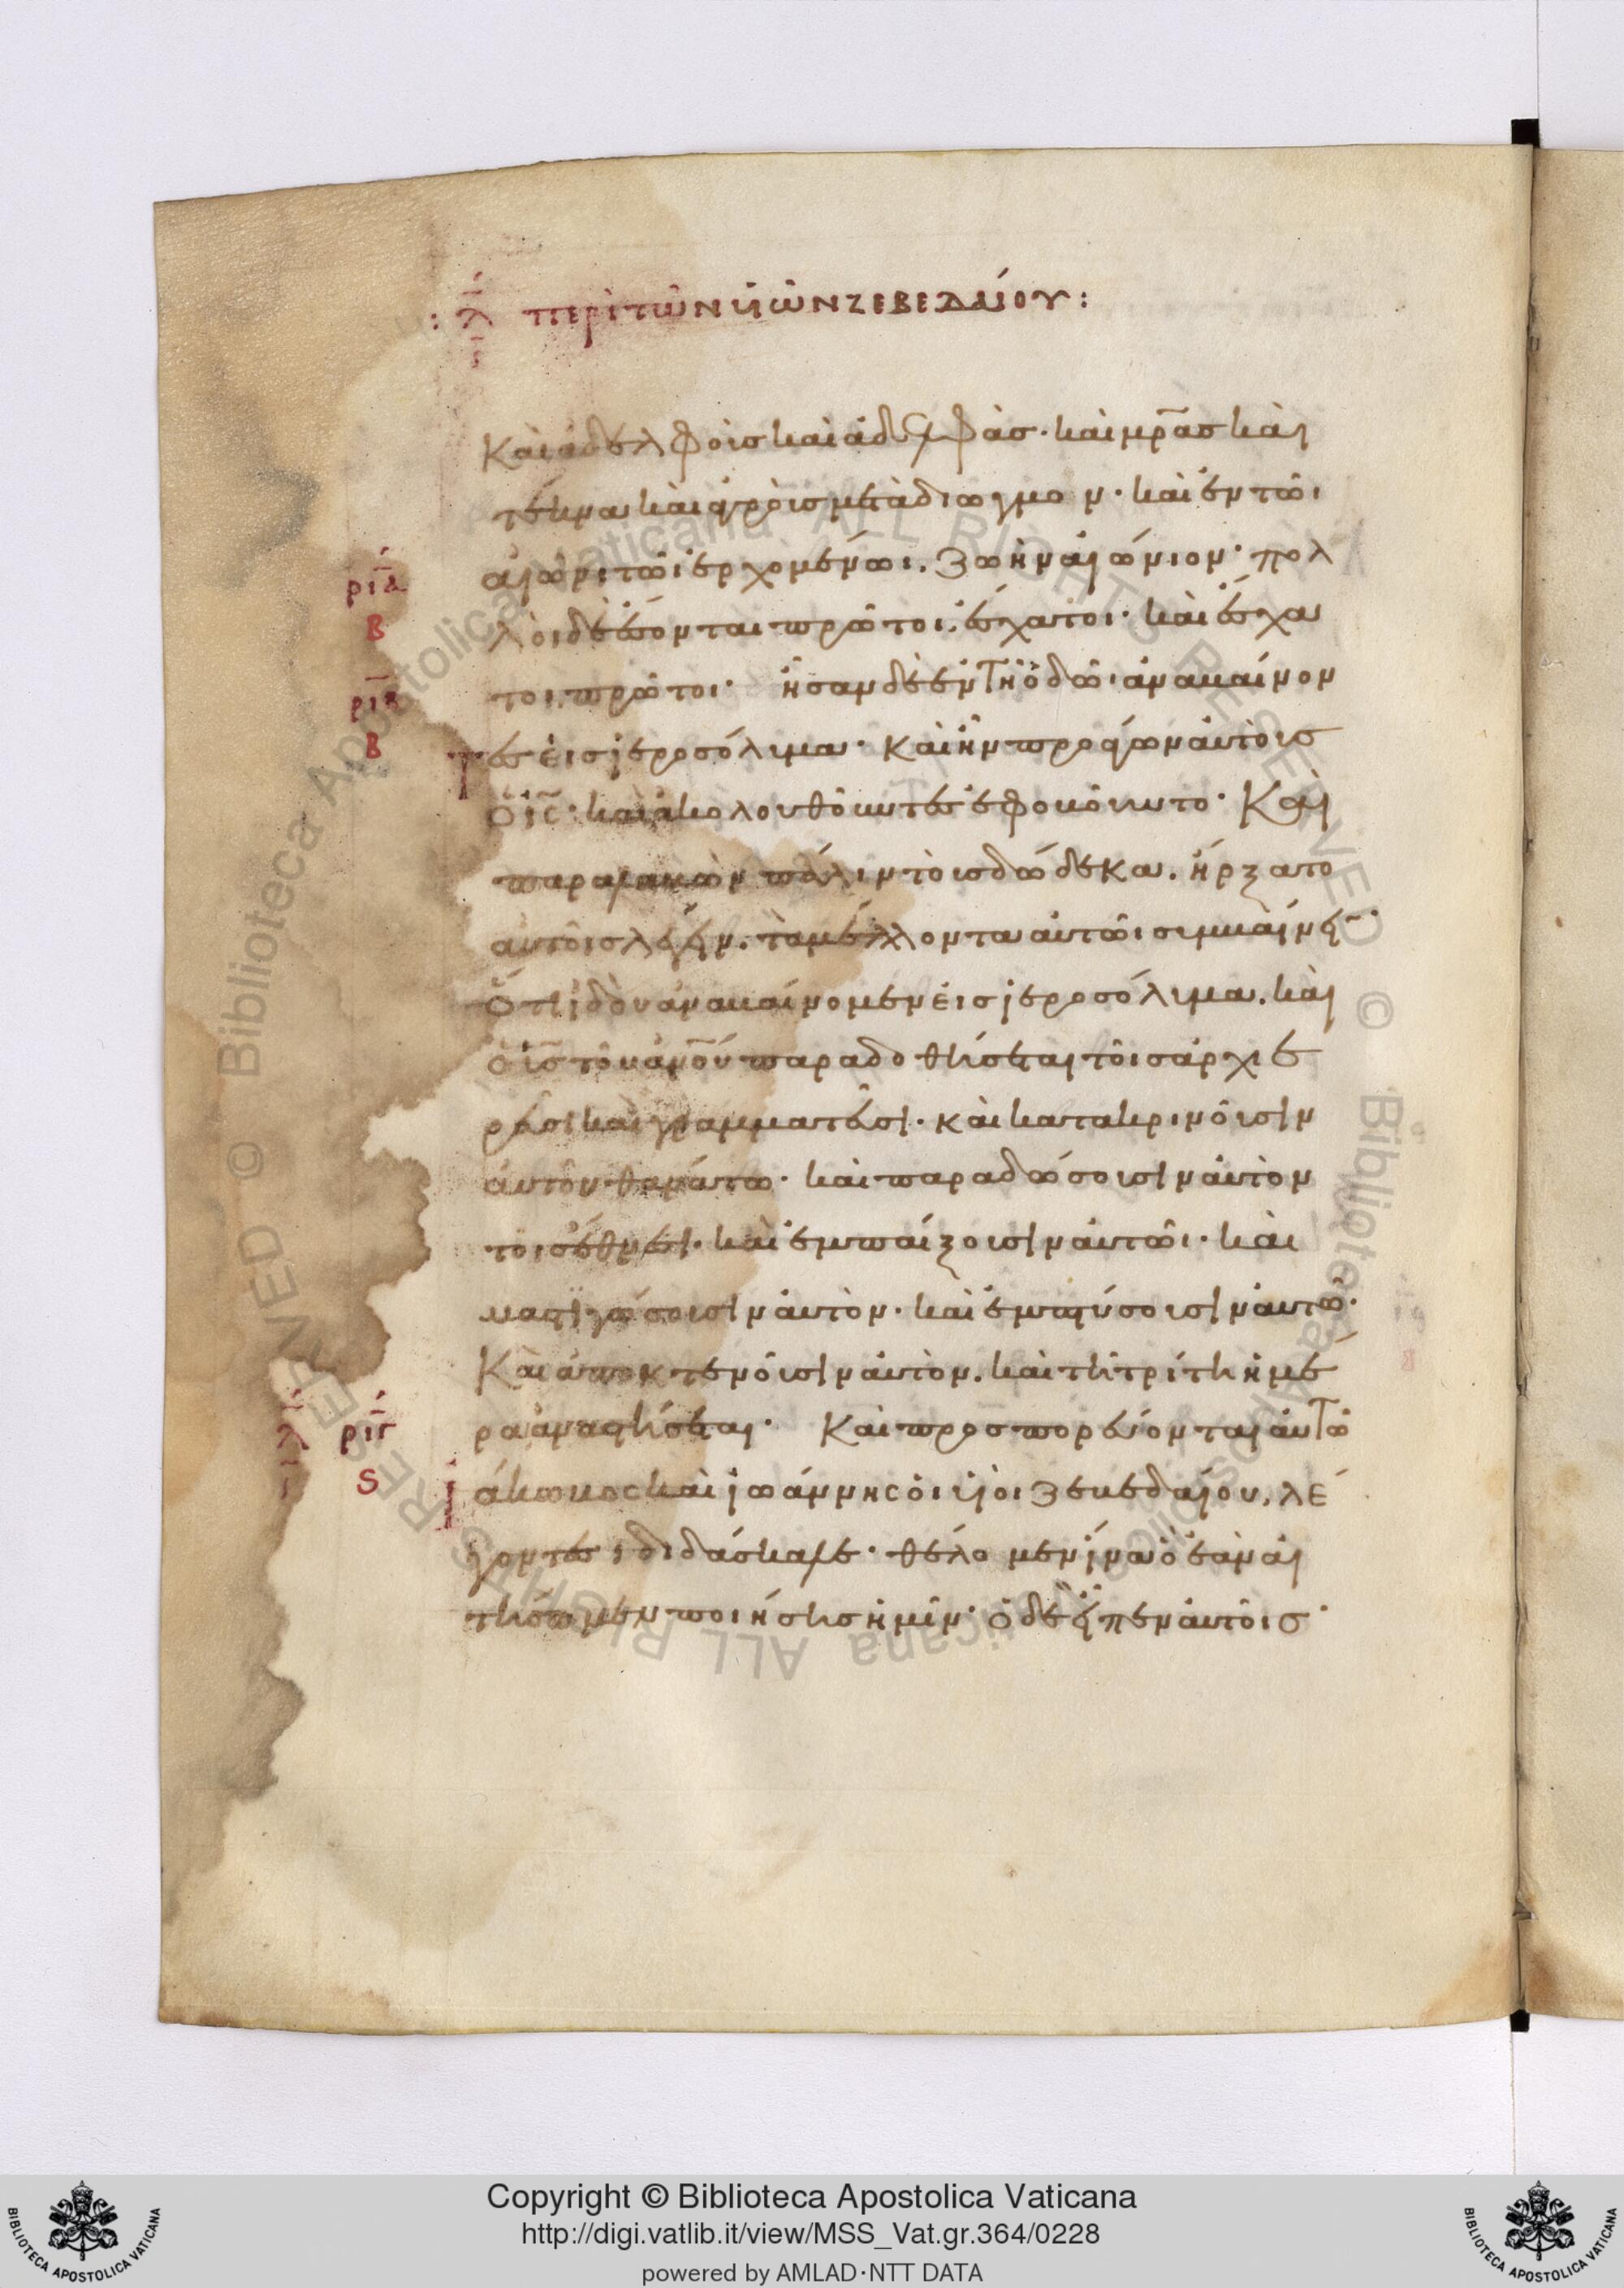 : λ περὶ τῶν υἱῶν ζεβεδαίου :
Καὶ ἀδελφοὺς καὶ ἀδελφὰς · καὶ μρ̅ας καὶ
τέκνα καὶ ἀγροὺς μετὰ διωγμον · καὶ ἐν τῶι
αἰῶνι τῶι ἐρχομένωι . ζωὴν αἰώνιον · πολ
ρια
λοὶ δὲ ἔσονται πρῶτοι . ἔσχατοι · καὶ ἔσχα
Β
τοι πρῶτοι · ἦσαν δὲ ἐν τῆ ὁδῶι ἀναβαίνον
ριβ
τες εἰς ἱεροσόλυμα · Καὶ ἦν προάγων αὐτοὺς
Β
ὁ ις̅ · καὶ ἀκολουθοῦντες ἐφοβοῦντο · Καὶ
παραλαβὼν πάλιν τοὺς δώδεκα . ἤρξατο
αὐτοῖς λέγειν . τὰ μέλλοντα αὐτῶι συμβαίνει̅ ·
Ὅτι ἰδοὺ ἀναβαίνομεν εἰς ἱεροσόλυμα . καὶ
ὁ υἱς̅ τοῦ ἀνο̅υ παραδοθήσεται τοῖς ἀρχιε
ρεῦσι καὶ γραμματεῦσι · καὶ κατακρινοῦσιν
αὐτὸν θανάτω · καὶ παραδώσουσιν αὐτὸν
τοῖς ἔθνεσι · καὶ ἐμπαίξουσιν αὐτῶι · καὶ
μαστιγώσουσιν αὐτὸν · καὶ ἐμπτύσουσιν αὐτῶ ·
Καὶ ἀποκτενοῦσιν αὐτὸν . καὶ τῆ τρίτη ἡμέ
ρα ἀναστήσεται · Καὶ προσπορεύονται αὐτῶ
λ ριγ
ἰάκωβος καὶ ἰωάννης οἱ υἱοὶ ζεβεδαίου , λέ
ς
γοντες ; διδάσκαλε · θέλομεν ἵνα ὃ ἐὰν αἰ
τήσωμεν ποιήσης ἡμῖν · ὁ δὲ εἶπεν αὐτοῖς ·
Copyright © Biblioteca Apostolica Vaticana
http://digi.vatlib.it/view/MSS_Vat.gr.364/0228
powered by AMLAD·NTT DATA
BIBLIOTECA APOSTOLICA VATICANA
BIBLIOTECA APOSTOLICA VATICANA
© Biblioteca Apostolica Vaticana ALL RIGHTS RESERVED © Biblioteca Apostolica Vaticana ALL RIGHTS RESERVED